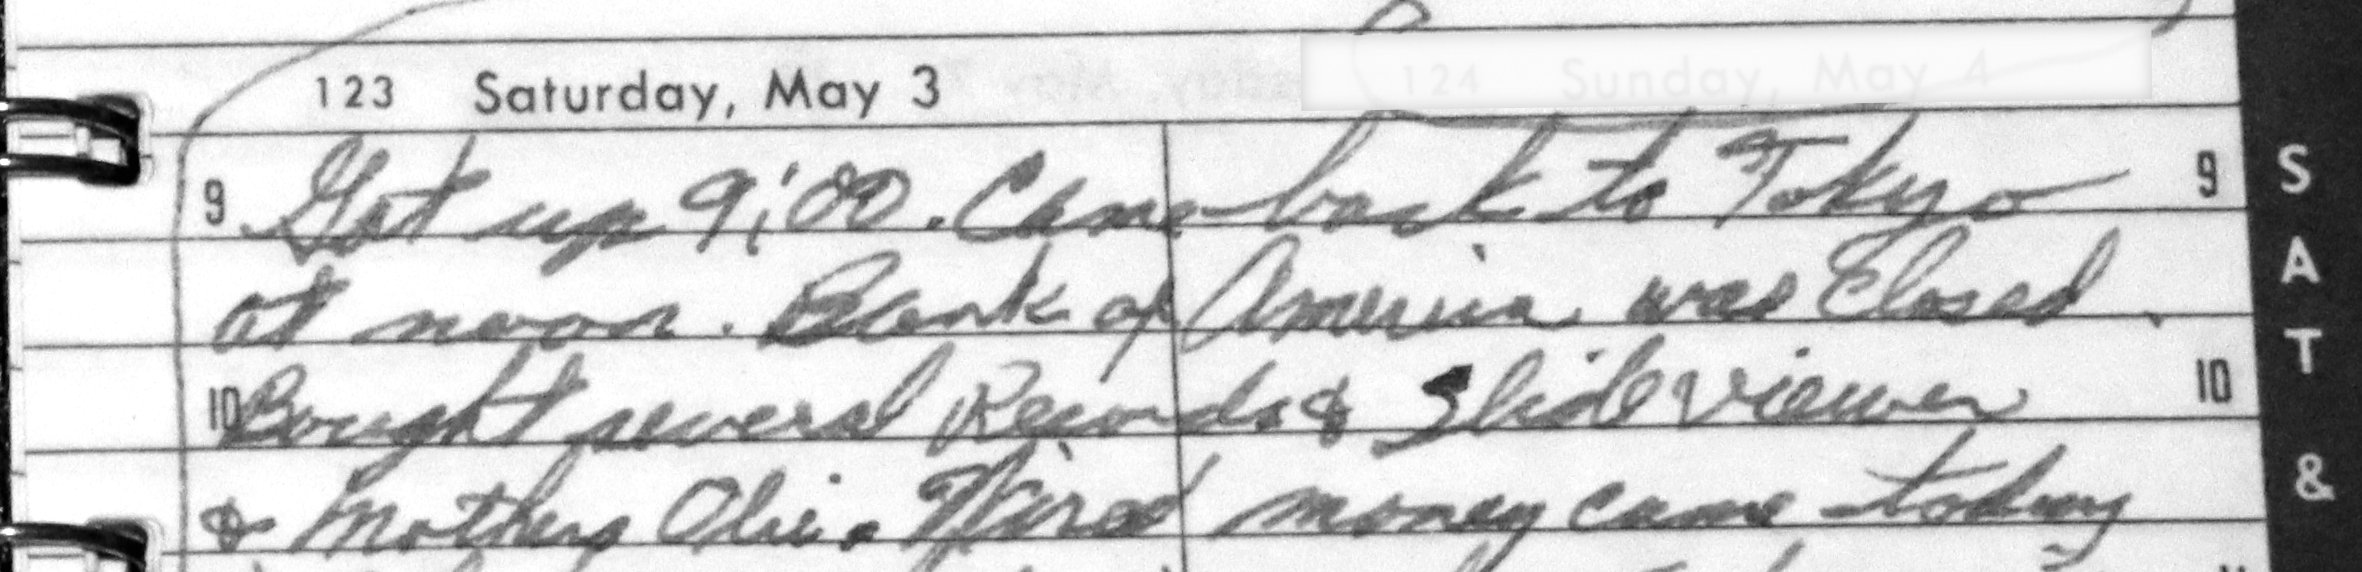 123 Saturday, May 3 124 Sunday, May 4
9 Got up 9:00. Came back to Tokyo 9 S
at noon. Bank of America was Closed. A
10 Bought several Records & Slide viewer 10 T
& mothers Obi. Wired money came today &